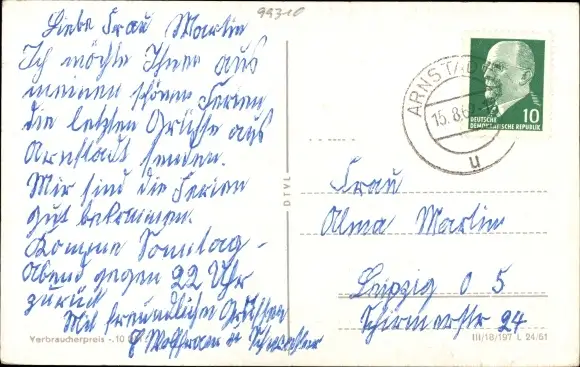 99310
Liebe Frau Martin
Ich möchte Ihnen aus
meinen schönen Ferien
die letzten Grüße aus
Arnstadt senden.
Mir sind die Ferien
gut bekommen.
Komme Sonntag -
Abend gegen 22 Uhr
zurück
Mit freundlichen Grüßen
Wolfram u Schwester
Verbraucherpreis -,10
DTVL
ARNSTADT
15.8.6
u
10
DEUTSCHE
DEMOKRATISCHE REPUBLIK
Frau
Alma Martin
Leipzig O 5
Schirmerstr 24
III/18/197 L 24/61